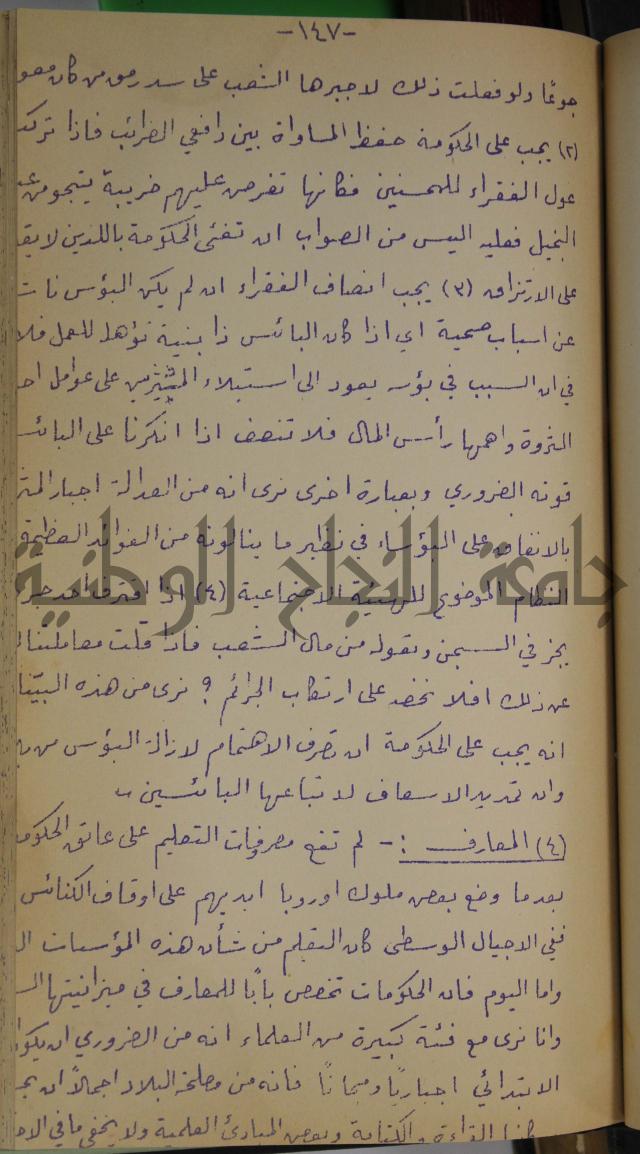 -١٤٧-
جوعًا ولو فعلت ذلك لاجبرها الشعب على سد رمق من كان معو
(٢) يجب على الحكومة حفظ المساواة بين دافعي الضرائب فاذا تركت
عول الفقراء للمحسنين فكانها تفرض عليهم ضريبة ينجو من
البخيل فعليه اليس من الصواب ان تعنى الحكومة باللذين لا يق
على الارتزاق (٣) يجب انصاف الفقراء ان لم يكن البؤس نات
عن اسباب صحية اي اذا كان البائس ذا بنية تؤهله للعمل فلا
في ان السبب في بؤسه يعود الى استيلاء المثرين على عوامل اح
الثروة واهمها رأس المال فلا تنصف اذا انكرنا على البائس
قوته الضروري وبعبارة اخرى نرى انه من العدالة اجبار المثر
بالانفاق على البؤساء في نظير ما ينالونه من الفوائد العظيمة
النظام الموضوع للهيئة الاجتماعية (٤) اذا اقترف احد جر
يجز في السجن ونعوله من مال الشعب فاذا قلت معاملتنا ل
عن ذلك افلا نحضه على ارتكاب الجرائم ؟ نرى من هذه البيّنا
انه يجب على الحكومة ان تصرف الاهتمام لازالة البؤس من بي
وان تمد يد الاسعاف لاتباعها البائسين
(٤) المعارف :- لم تقع مصروفات التعليم على عاتق الحكوم
بعدما وضع بعض ملوك اوروبا ايديهم على اوقاف الكنائس
ففي الاجيال الوسطى كان التعلم من شأن هذه المؤسسات ال
واما اليوم فان الحكومات تخصص بابًا للمعارف في ميزانيتها الس
وانا نرى مع فئة كبيرة من العلماء انه من الضروري ان يكو
الابتدائي اجباريًا ومجانًا فانه من مصلحة البلاد اجمالًا ان يح
القراءة والكتابة وبعض المبادئ العلمية ولا يخفى ما في الام
جامعة النجاح الوطنية